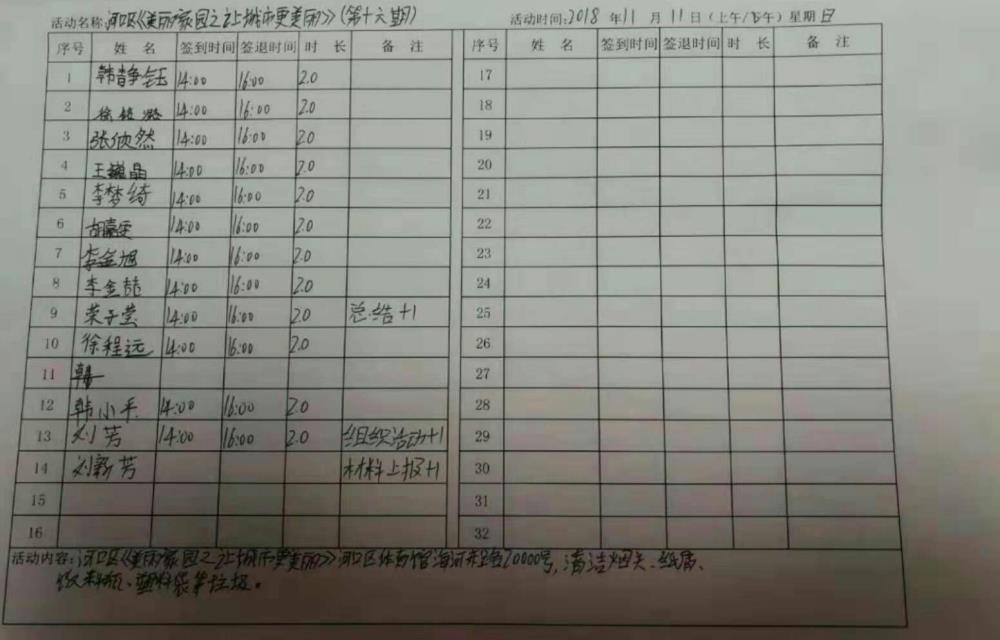 活动名称:河口区《美丽家园之让城市更美丽》(第十六期) 活动时间:2018 年 11 月 11 日(上午/下午)星期 日
序号 姓 名 签到时间 签退时间 时 长 备 注 序号 姓 名 签到时间 签退时间 时 长 备 注
1 韩静钰 14:00 16:00 2.0 17
2 徐 14:00 16:00 2.0 18
3 张欣然 14:00 16:00 2.0 19
4 王 晶 14:00 16:00 2.0 20
5 李梦绮 14:00 16:00 2.0 21
6 胡嘉雯 14:00 16:00 2.0 22
7 李金旭 14:00 16:00 2.0 23
8 李金喆 14:00 16:00 2.0 24
9 荣子莹 14:00 16:00 2.0 总结+1 25
10 徐程远 14:00 16:00 2.0 26
11 韩 27
12 韩小平 14:00 16:00 2.0 28
13 刘芳 14:00 16:00 2.0 组织活动+1 29
14 刘新芳 材料上报+1 30
15 31
16 32
活动内容:河口区《美丽家园之让城市更美丽》河口区体育馆海河路 号,清洁烟头、纸屑、
饮料瓶、塑料袋等垃圾。